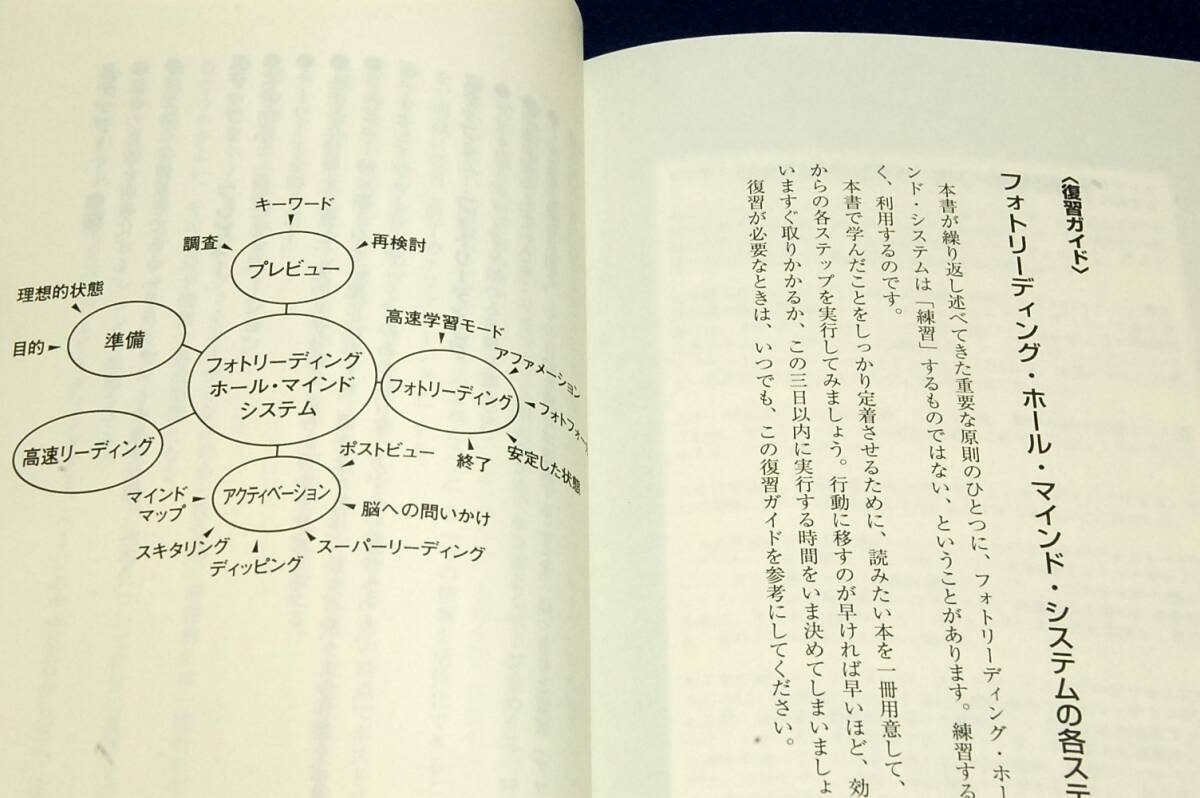 〈復習ガイド〉
フォトリーディング・ホール・マインド・システムの各ステ
本書が繰り返し述べてきた重要な原則のひとつに、フォトリーディング・ホー
ンド・システムは「練習」するものではない、ということがあります。練習する
く、利用するのです。
本書で学んだことをしっかり定着させるために、読みたい本を一冊用意して、
からの各ステップを実行してみましょう。行動に移すのが早ければ早いほど、効
いますぐ取りかかるか、この三日以内に実行する時間をいま決めてしまいましょ
復習が必要なときは、いつでも、この復習ガイドを参考にしてください。
キーワード
調査
再検討
プレビュー
理想的状態
目的
準備
フォトリーディング
ホール・マインド
システム
高速学習モード
アファメーション
フォトリーディング
フォトフォー
安定した状態
終了
高速リーディング
ポストビュー
アクティベーション
マインド
マップ
脳への問いかけ
スキタリング
ディッピング
スーパーリーディング